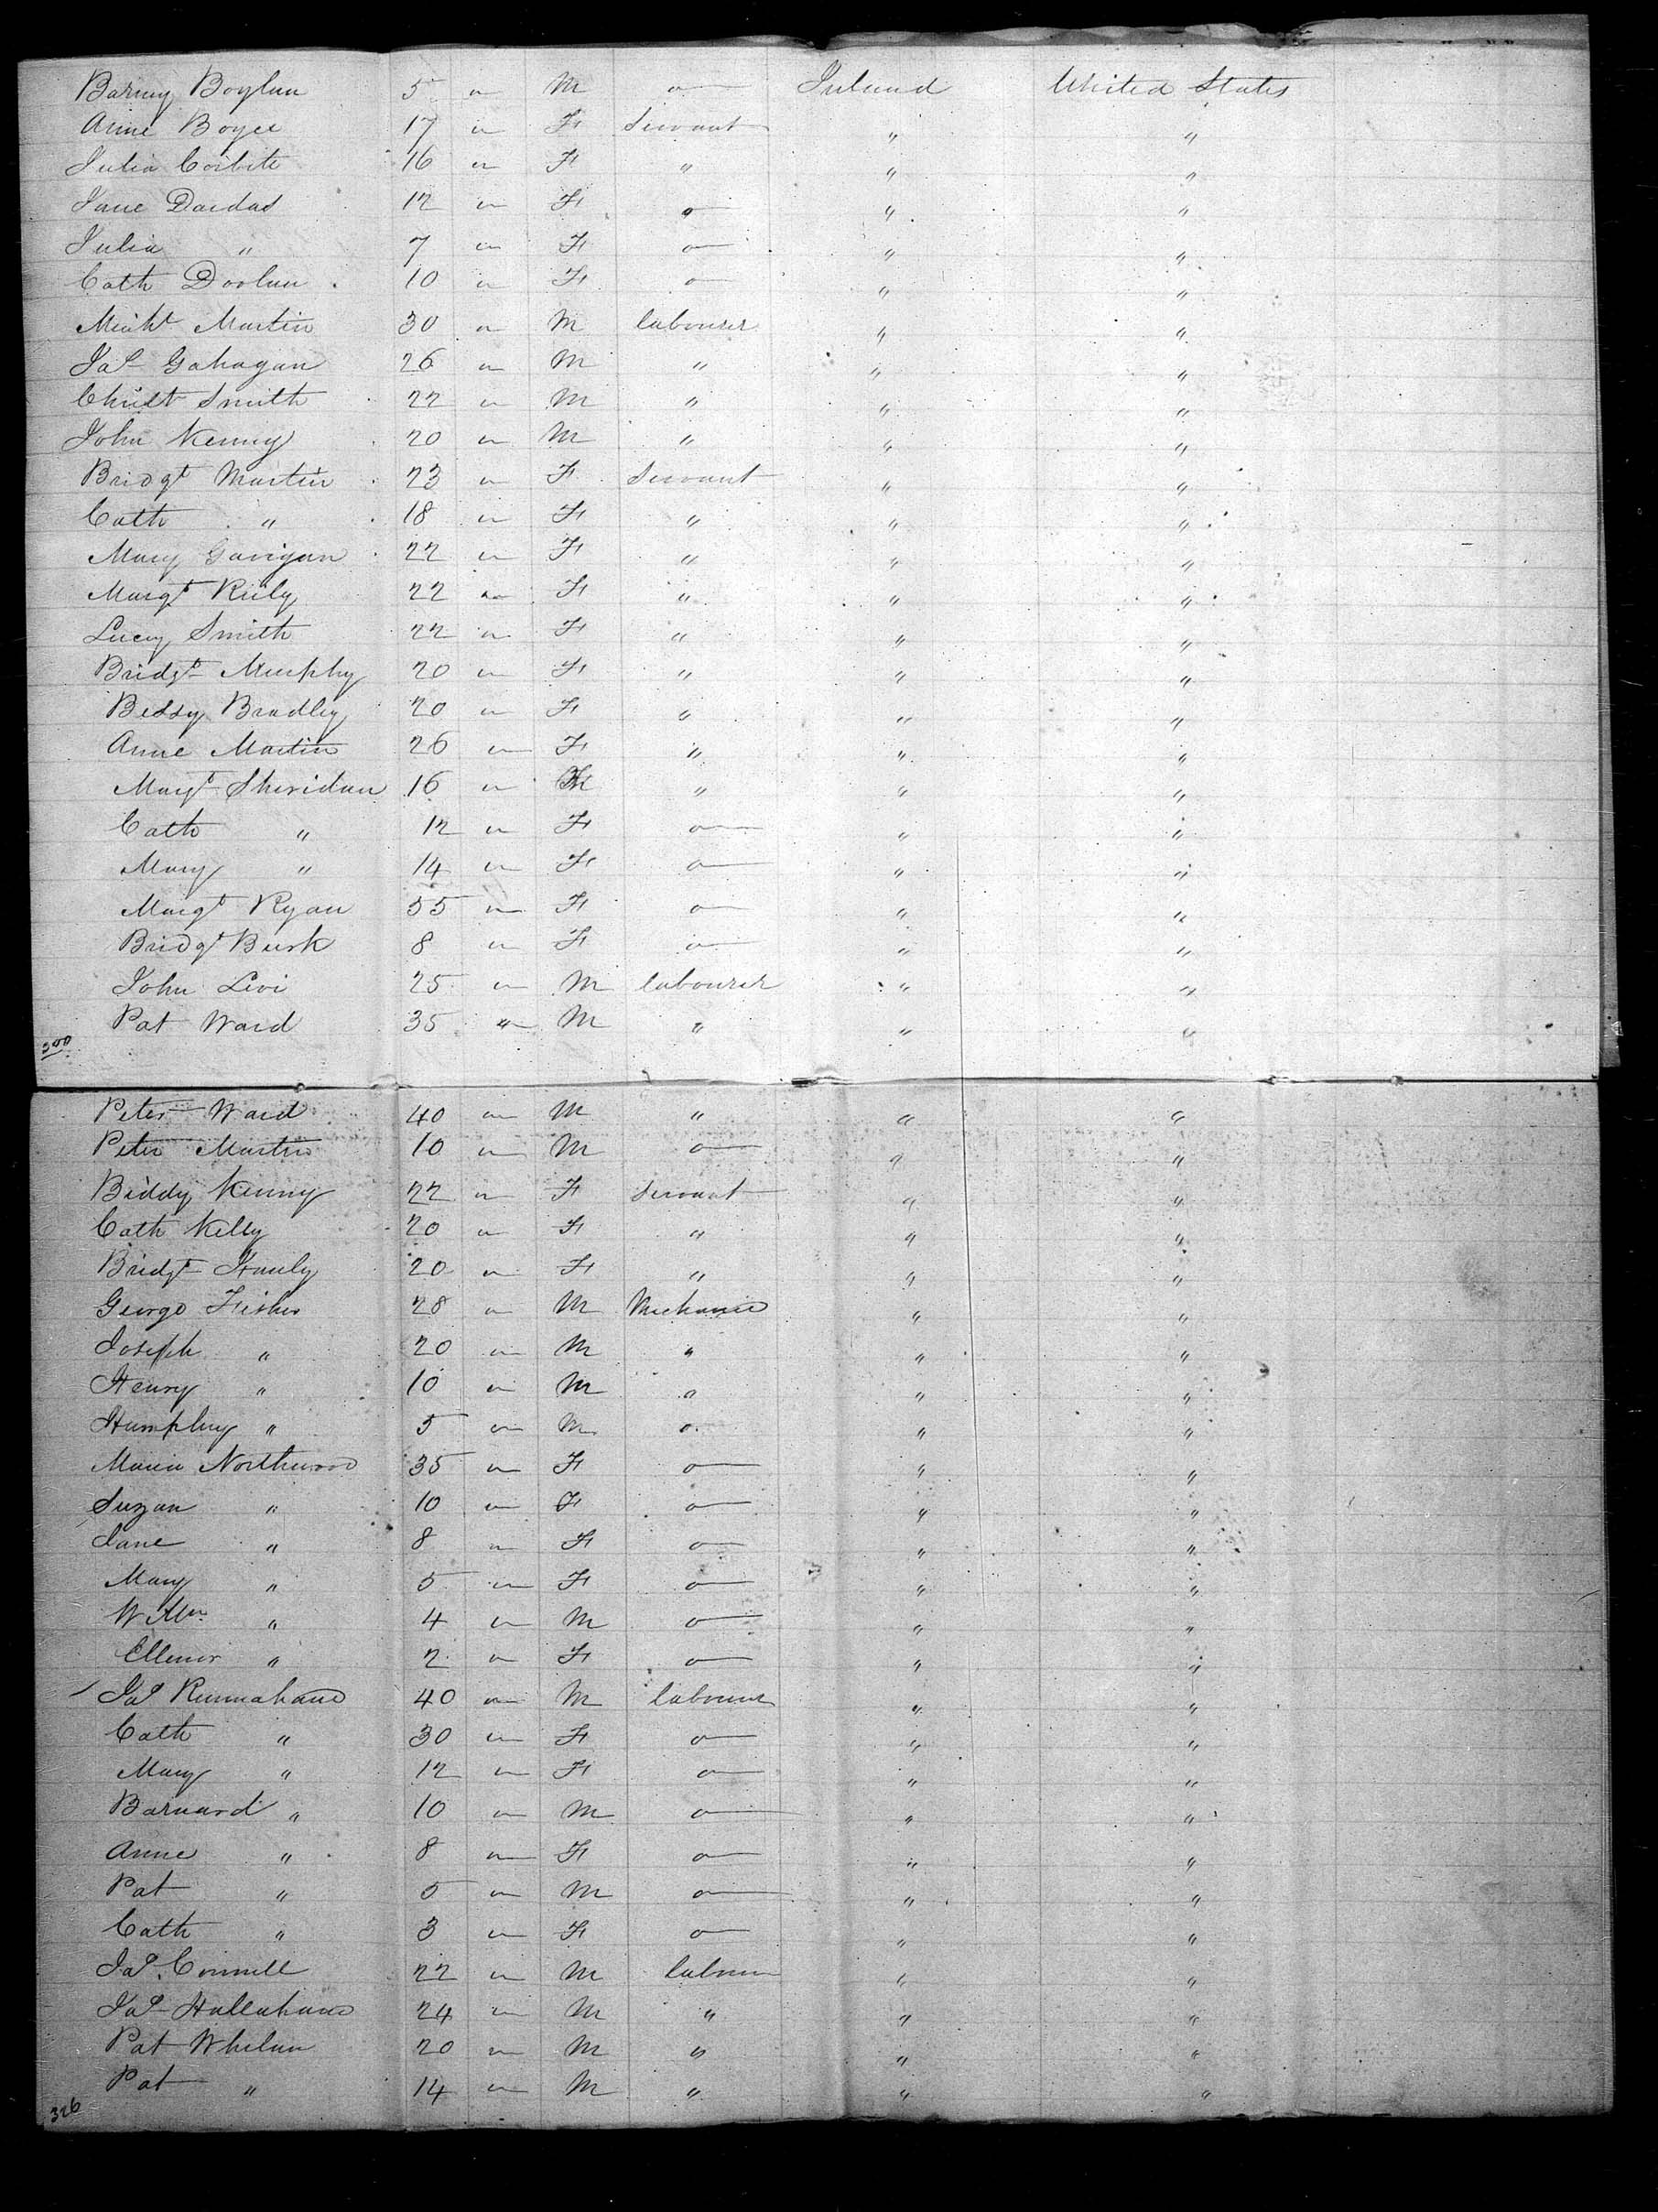 Barny Boylan 5 " M — Ireland United States
Anne Boyce 17 " F Servant " "
Julia Corbite 16 " F " " "
Jane Dardas 12 " F — " "
Julia " 7 " F — " "
Cath Doolan 10 " F — " "
Michl Martin 30 " M labourer " "
Jas Gahagan 26 " M " " "
Christ Smith 22 " M " " "
John Kenny 20 " M " " "
Bridgt Martin 23 " F Servant " "
Cath " 18 " F " " "
Mary Gavigan 22 " F " " "
Margt Reily 22 " F " " "
Lucy Smith 22 " F " " "
Bridgt Murphy 20 " F " " "
Bessy Bradley 20 " F " " "
Anne Martin 26 " F " " "
Margt Sheridan 16 " F " " "
Cath " 12 " F — " "
Mary " 14 " F — " "
Margt Ryan 55 " F — " "
Bridgt Burk 8 " F — " "
John Levi 25 " M labourer " "
Pat Ward 35 " M " " "
300
Peter Ward 40 " M " " "
Peter Martin 10 " M — " "
Biddy Kenny 22 " F Servant " "
Cath Kelly 20 " F " " "
Bridgt Hanly 20 " F " " "
George Fisher 28 " M Mechanic " "
Joseph " 20 " M " " "
Henry " 10 " M " " "
Humphry " 5 " M " " "
Maria Northwood 35 " F — " "
Suzan " 10 " F — " "
Jane " 8 " F — " "
Mary " 5 " F — " "
Willm " 4 " M — " "
Ellenor " 2 " F — " "
Jas Runnahane 40 " M labourer " "
Cath " 30 " F — " "
Mary " 12 " F — " "
Barnard " 10 " M — " "
Anne " 8 " F — " "
Pat " 5 " M — " "
Cath " 3 " F — " "
Jas Connell 22 " M labourer " "
Jas Hallahane 24 " M " " "
Pat Whelan 20 " M " " "
Pat " 14 " M " " "
326